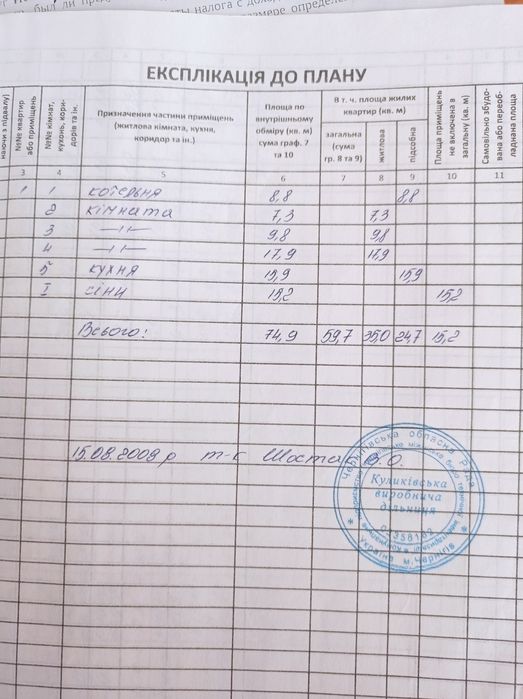 был ли пре
налога с дохо
размере определ
ЕКСПЛІКАЦІЯ ДО ПЛАНУ
наючи з підвалу)
№№ квартир або приміщень
№№ кімнат, кухонь, коридорів та ін.
Призначення частини приміщень (житлова кімната, кухня, коридор та ін.)
Площа по внутрішньому обміру (кв. м) сума граф. 7 та 10
В т. ч. площа жилих квартир (кв. м)
загальна (сума гр. 8 та 9)
житлова
підсобна
Площа приміщень не включена в загальну (кв. м)
Самовільно збудована або переобладнана площа
3 4 5 6 7 8 9 10 11
1 1 котельня 8,8 8,8
2 кімната 7,3 7,3
3 —//— 9,8 9,8
4 —//— 17,9 17,9
5 кухня 15,9 15,9
I сіни 15,2 15,2
Всього: 74,9 59,7 35,0 24,7 15,2
15.08.2009 р т-к Шостак В.О.
Чернігівська обласна Рада
Куликівська
виробнича
дільниця
Україна м.Чернігів